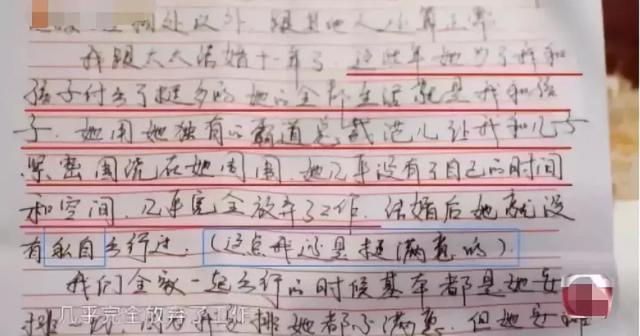 处以外,跟其他人还算正常
我跟太太结婚十一年了.这些年她为了我和
孩子付出了挺多的她的全部生活就是我和孩
子.她用她独有的霸道总裁范儿让我和儿子
紧密围绕在她周围.她几乎没有了自己的时间
和空间,几乎完全放弃了工作.结婚后她就没
有私自出行过.(这点我还是挺满意的).
我们全家一起出行的时候基本都是她安
排
几乎完全放弃了工作
安排她都不满意.但她安